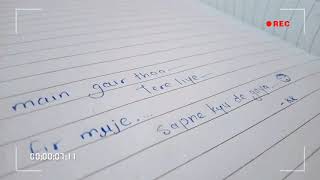 REC
main gair thoo....
Tere liye....
fir muje....
sapne kyu de gaya
00:00:07:11